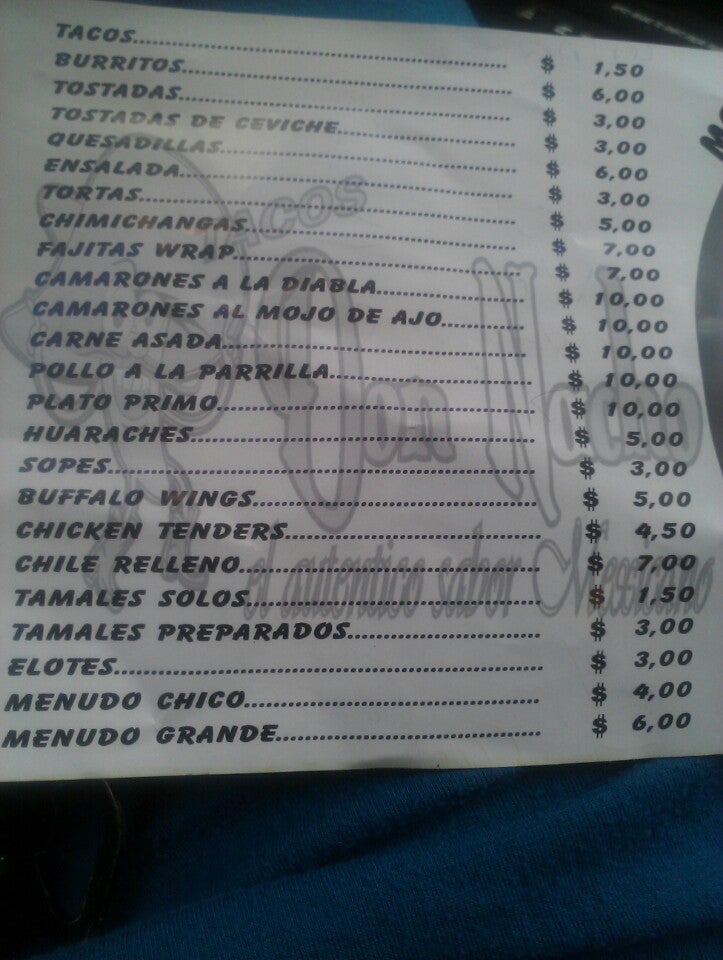 TACOS $ 1,50
BURRITOS $ 6,00
TOSTADAS $ 3,00
TOSTADAS DE CEVICHE $ 3,00
QUESADILLAS $ 6,00
ENSALADA $ 3,00
TORTAS $ 5,00
CHIMICHANGAS $ 7,00
FAJITAS WRAP $ 7,00
CAMARONES A LA DIABLA $ 10,00
CAMARONES AL MOJO DE AJO $ 10,00
CARNE ASADA $ 10,00
POLLO A LA PARRILLA $ 10,00
PLATO PRIMO $ 10,00
HUARACHES $ 5,00
SOPES $ 3,00
BUFFALO WINGS $ 5,00
CHICKEN TENDERS $ 4,50
CHILE RELLENO $ 7,00
TAMALES SOLOS $ 1,50
TAMALES PREPARADOS $ 3,00
ELOTES $ 3,00
MENUDO CHICO $ 4,00
MENUDO GRANDE $ 6,00
TACOS
Don Nacho
el autentico sabor Mexicano